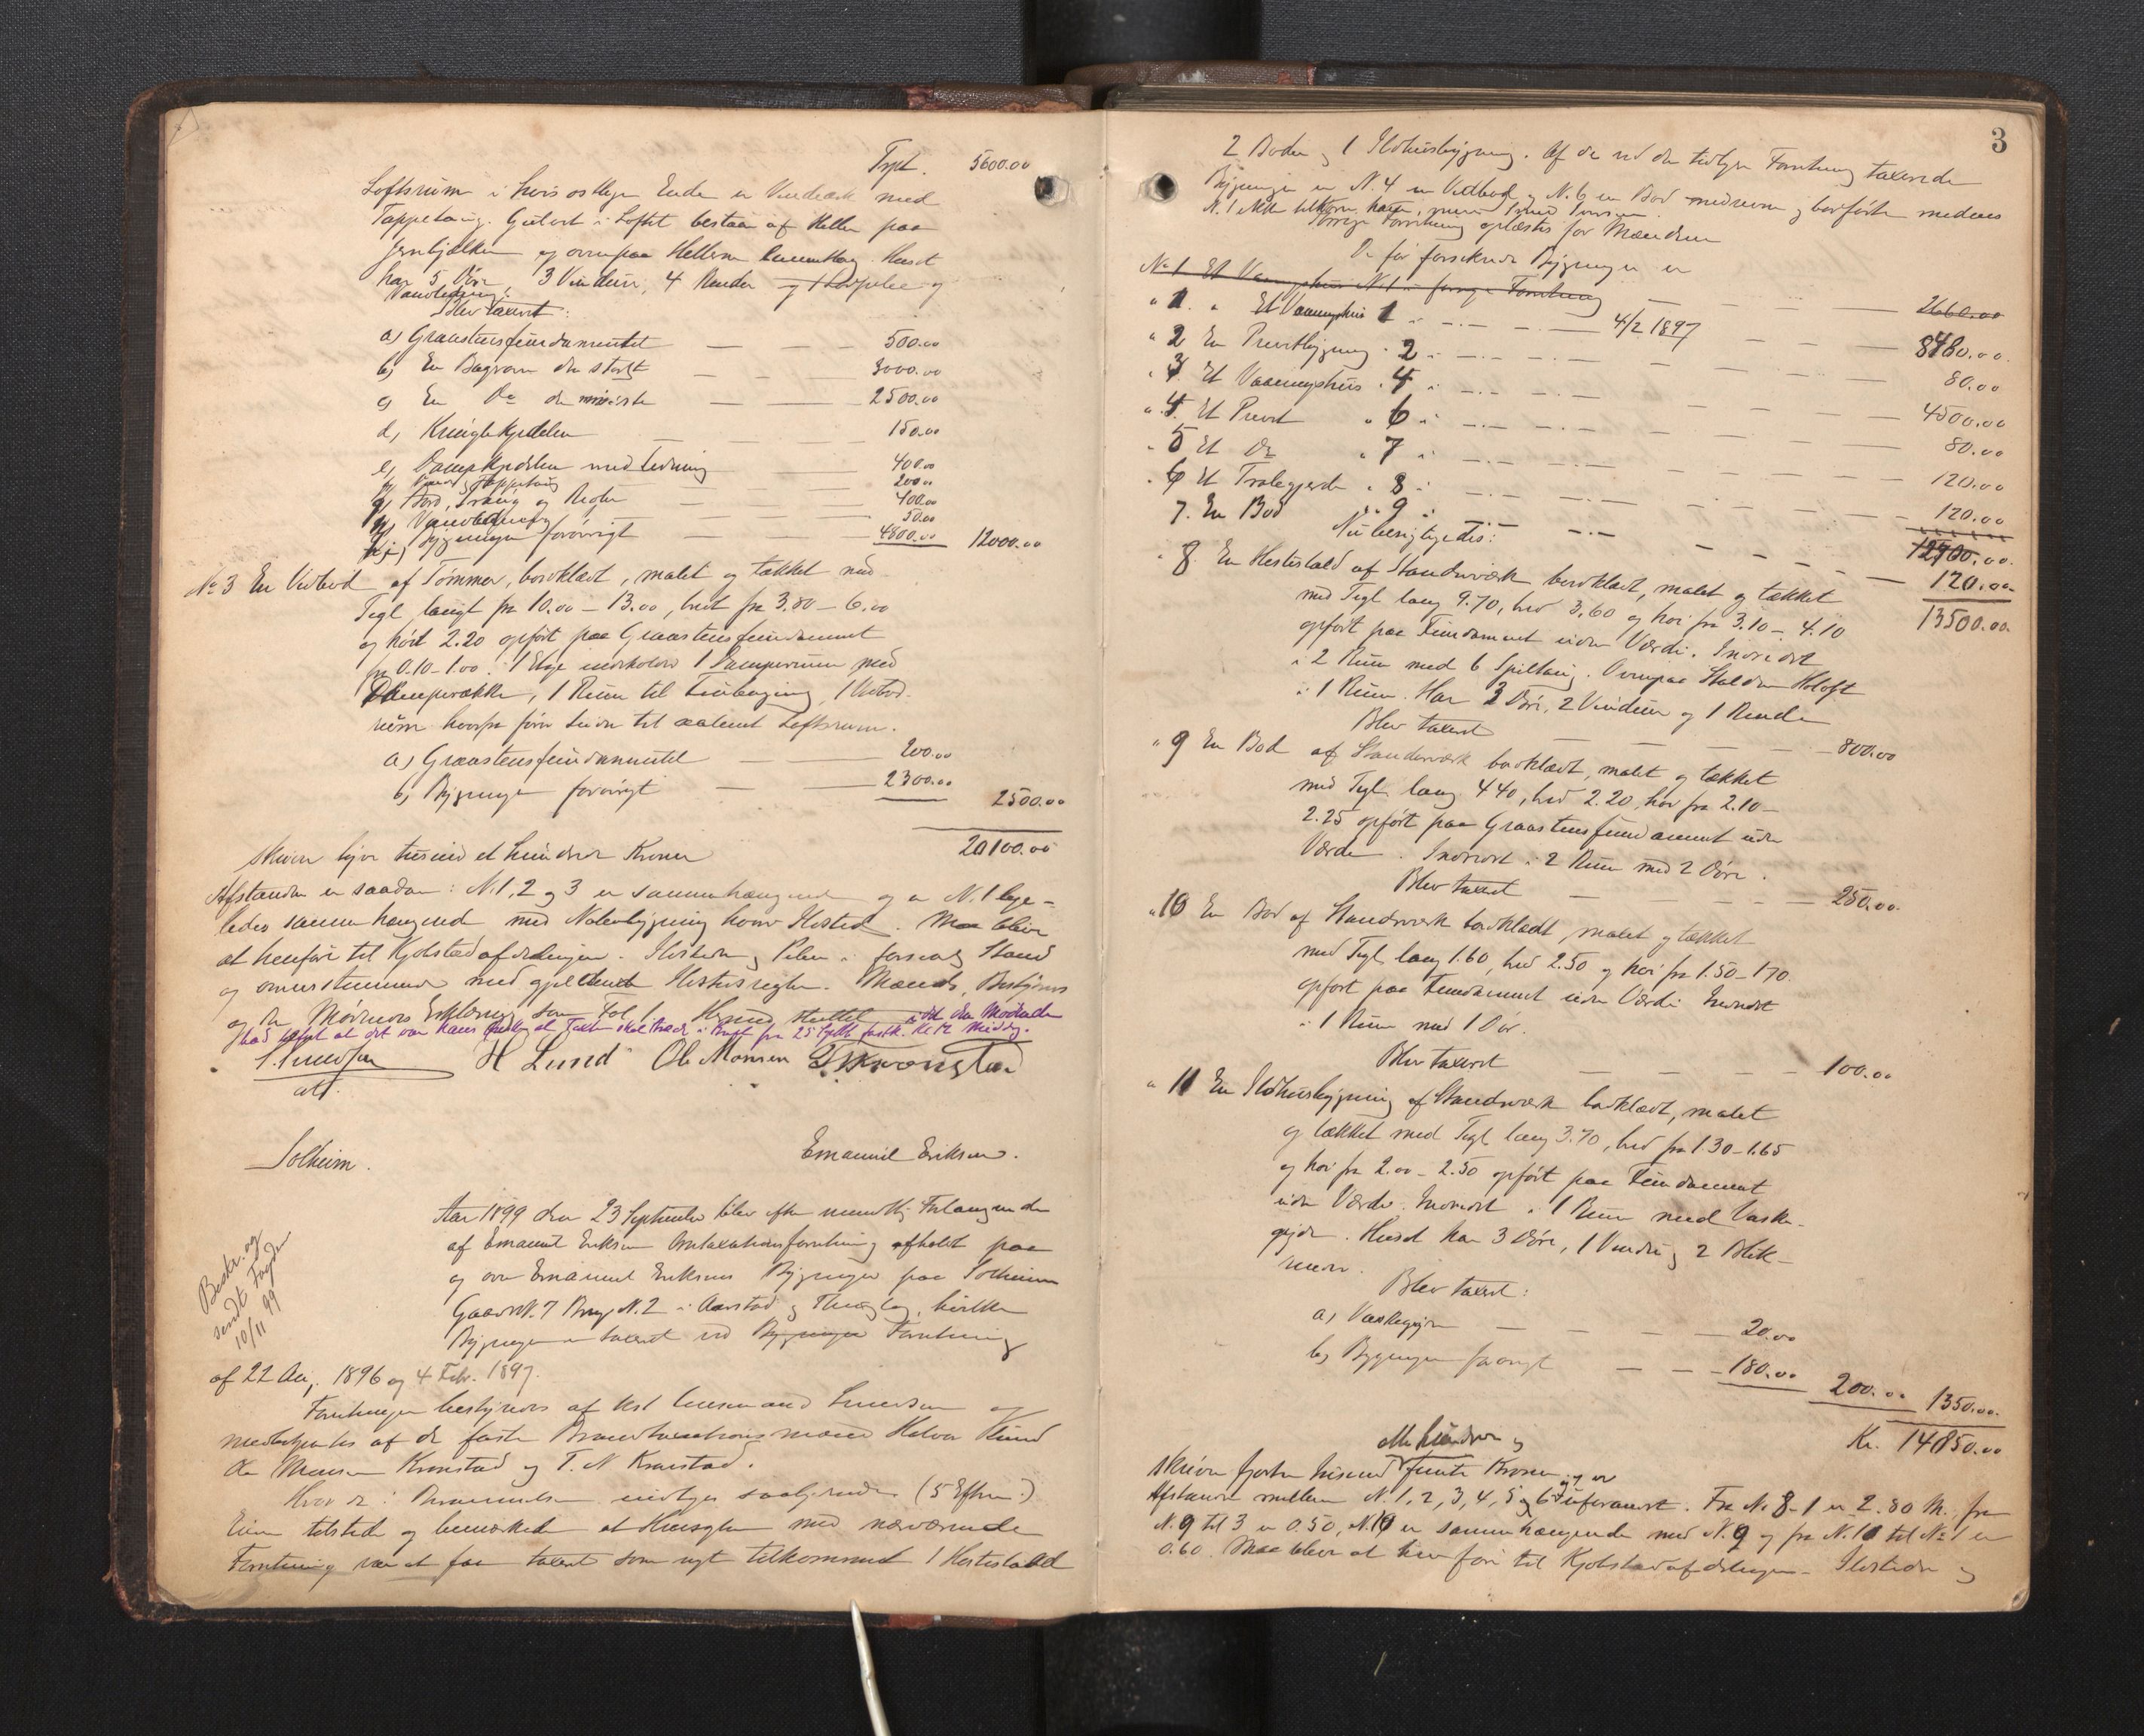 Trpt. 5600.00
Loftsrum i hvis østlige Ende er Vindtræk med
Tappetøug. Gulvet i Loftet bestaar af Heller paa
Jernbjælker og ovenpaa Hellerne Cementlag. Huset
har 5 Døre 3 Vinduer, 4 Render og
Vandledning.
Blev taxeret:
a) Graastensfundamentet — — — 500.00
b) En Bagerovn den største — — — 3000.00
c) En Do den mindste — — 2500.00
d) Kringlekjedelen — — 150.00
e) Dampkjedelen med Ledning — 400.00
200.00
g) Bord, Traug og Regler — — 400.00
h) Vandledning 50.00
i) Bygningen forøvrigt — — 4800.00 12000.00
No 3 En Vedbod af Tømmer, bordklædt, malet og tækket med
Tegl langt fra 10.00 – 13.00, bredt fra 3.80 – 6.00
og høit 2.20 opført paa Graastensfundament
fra 0.10 – 1.00. 1 Etage indeholder 1 Lamperum med
Lamperække, 1 Rum til Tinlægning, 1 Vedbod-
rum hvorfra fører Leider til aabent Loftsrum.
a) Graastensfundamentet — — 200.00
b) Bygningen forøvrigt — — 2300.00
2500.00
20100.00
skriver tyve tusind et hundrede Kroner
Afstanden er saadan: N. 1, 2 og 3 er sammenhængende og er N. 1 lige-
ledes sammenhængende med Nabobygning hvori Ildsted. Maa blive
at henføre til Kjøbstadafdelingen. Ildsteder og Piber i forsvarlig Stand
og overensstemmende med gjeldende Ildstedsregler. Mænds, Bestyrers
og den Mødendes Erklæring som Fol 1. Hermed sluttet idet den Mødende
bad tilført at det var hans Ønske at Taxten skal træde i Kraft fra 25 Septbr førstk. Kl 12 Middag.
H Lund Ole Monsen T. N. Kronstad
Solheim. Emanuel Eriksen.
Aar 1899 den 23 September blev efter mundtlig Forlangende
af Emanuel Eriksen Omtaxationsforretning afholdt paa
og over Emanuel Eriksens Bygninger paa Solheim
Gaards N. 7 Brugs N. 2 i Aarstad Thinglag, hvilke
Bygninger er taxeret ved Forretning
Beskr. og
sendt Fogden
10/11 99
af 22 Aug. 1896 og 4 Febr. 1897.
Forretningen bestyredes af kst Lensmand og
medbetjentes af de faste Brandtaxationsmænd Halvor Lund
Ole Monsen Kronstad og T. N Kronstad.
Hvor da: Brammelsen indtages saalydende (5 Eftm.)
Eieren tilstede og bemærkede at Hensigten med nærværende
Forretning var at faa taxeret som nyt tilkommet 1 Hestestald
3
2 Boder og 1 Ildhusbygning. Af de ved den tidligere Forretning taxerede
Bygninger er N. 4 en Vedbod og N. 6 en Bod nedrevne og bortførte medens
N. 1
forrige Forretning oplæstes for Mændene
De før forsikrede Bygninger er
No 1 Et Vaaningshus N. 1 i forrige Forretning — — — 2660.00
" 1 " Et Vaaningshus 1 " — " — 4/2 1897 — — — 8480.00
" 2 En Privetbygning " 2 " — " — — 80.00
" 3 Et Vaaningshus " 4 " — " — — 4500.00
" 4 Et Privet " 6 " — " — — 80.00
" 5 Et Do " 7 " — " — — 120.00
" 6 Et Tralegjerde " 8 " — " — — 120.00
7. En Bod " 9 " — " — — 120.00
Nu besigtigedes: 13500.00
" 8 En Hestestald af Standerværk bordklædt, malet og tækket
med Tegl lang 9.70, bred 3.60 og høi fra 3.10 – 4.10
opført paa Fundament uden Værdi. Indredet
i 2 Rum med 6 Spiltoug. Ovenpaa Stalden Høloft
i 1 Rum. Har 3 Døre, 2 Vinduer og 1 Rende
Blev taxeret — — — 800.00
" 9 En Bod af Standerværk bordklædt, malet og tækket
med Tegl lang 4.40, bred 2.20, høi fra 2.10 –
2.25 opført paa Graastensfundament uden
Værdi. Indredet i 2 Rum med 2 Døre.
Blev taxeret — — — 250.00
" 10 En Bod af Standerværk bordklædt, malet og tækket
med Tegl lang 1.60, bred 2.50 og høi fra 1.50 – 1.70
opført paa Fundament uden Værdi Indredet
i 1 Rum med 1 Dør.
Blev taxeret — — — 100.00
" 11 En Ildhusbygning af Standerværk bordklædt, malet
og tækket med Tegl lang 3.70, bred fra 1.30 – 1.65
og høi fra 2.00 – 2.50 opført paa Fundament
uden Værdi. Indredet i 1 Rum med Vaske-
gryde. Huset har 3 Døre, 1 Vindu og 2 Blik-
Blev taxeret:
a) Vaskegryden — — — 20.00
b) Bygningen forøvrigt — — 180.00
200.00 1350.00
Kr. 14850.00
otte hundrede og
skriver fjorten tusind femti Kroner
Afstanden mellem N. 1, 2, 3, 4, 5 og 6 og 7 er uforandret. Fra No 8 – 1 er 2.80 M., fra
N. 9 til 3 er 0.50, N. 10 er sammenhængende med N. 9 og fra N. 11 til No 1 er
0.60. Maa blive at henføre til Kjøbstadafdelingen. Ildsteder og